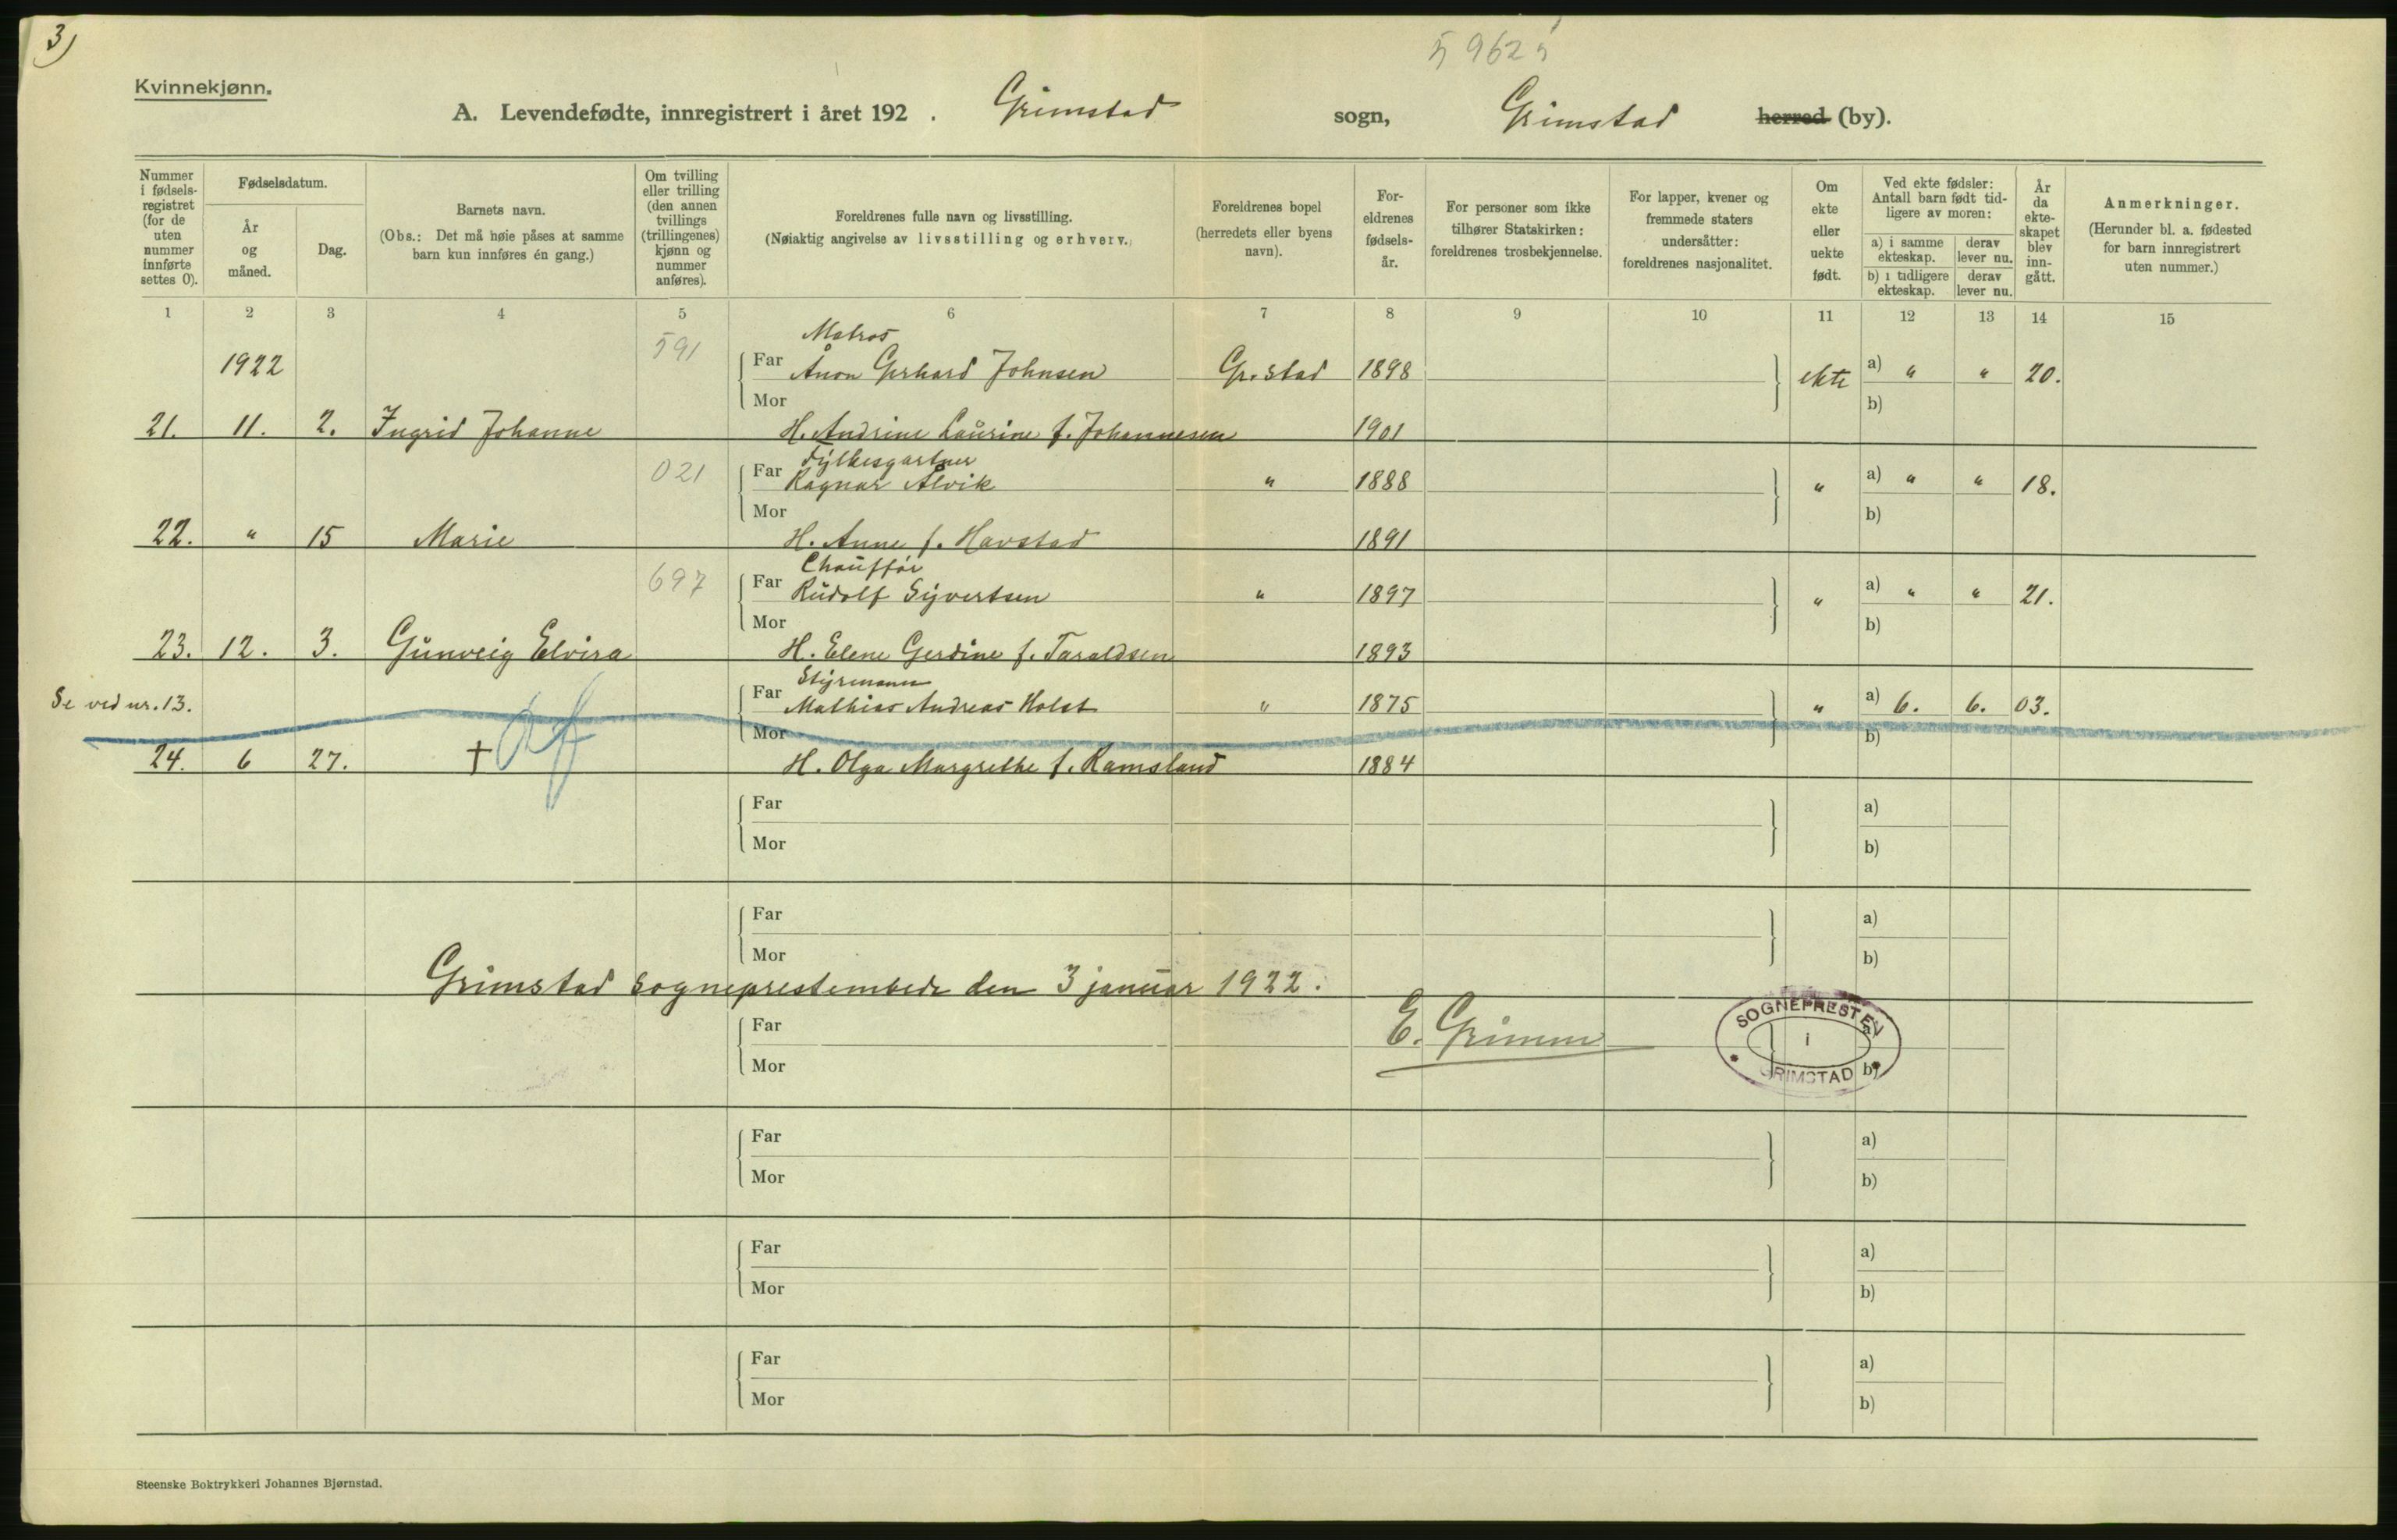 3)
59625
Kvinnekjønn.
A. Levendefødte, innregistrert i året 192 . Grimstad sogn, Grimstad herred (by).
Nummer i fødselsregistret (for de uten nummer innførte settes 0).
Fødselsdatum.
År og måned.
Dag.
Barnets navn.
(Obs.: Det må høie påses at samme barn kun innføres én gang.)
Om tvilling eller trilling (den annen tvillings (trillingenes) kjønn og nummer anføres).
Foreldrenes fulle navn og livsstilling.
(Nøiaktig angivelse av livsstilling og erhverv.)
Foreldrenes bopel (herredets eller byens navn).
Foreldrenes fødselsår.
For personer som ikke tilhører Statskirken: foreldrenes trosbekjennelse.
For lapper, kvener og fremmede staters undersåtter: foreldrenes nasjonalitet.
Om ekte eller uekte født.
Ved ekte fødsler: Antall barn født tidligere av moren:
a) i samme ekteskap.
derav lever nu.
b) i tidligere ekteskap.
derav lever nu.
År da ekteskapet blev inngått.
Anmerkninger.
(Herunder bl. a. fødested for barn innregistrert uten nummer.)
1 2 3 4 5 6 7 8 9 10 11 12 13 14 15
Matros
1922 591 Far Anon Gerhard Johnsen Gr.stad 1898 ekte a) " " 20.
Mor b)
21. 11. 2. Ingrid Johanne H. Andrine Laurine f. Johannesen 1901
Fylkesgartner
021 Far Ragnar Ålvik " 1888 " a) " " 18.
Mor b)
22. " 15 Marie H. Anne f. Havstad 1891
Chauffør
697 Far Rudolf Syvertsen " 1897 " a) " " 21.
Mor b)
23. 12. 3. Gunveig Elvira H. Elene Gerdine f. Taraldsen 1893
Styrmann
Se ved nr. 13. Far Mathias Andreas Holst " 1875 " a) 6. 6. 03.
Mor b)
24. 6 27. † H. Olga Margrethe f. Ramsland 1884
Far a)
Mor b)
Far a)
Mor b)
Grimstad sogneprestembede den 3 januar 1922.
Far a)
E. Grimm
Mor b)
SOGNEPRESTEN
i
GRIMSTAD
Far a)
Mor b)
Far a)
Mor b)
Far a)
Mor b)
Steenske Boktrykkeri Johannes Bjørnstad.